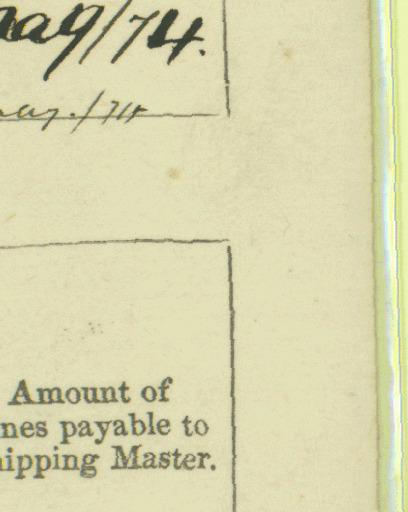 May/74.
May./74
Amount of
nes payable to
hipping Master.